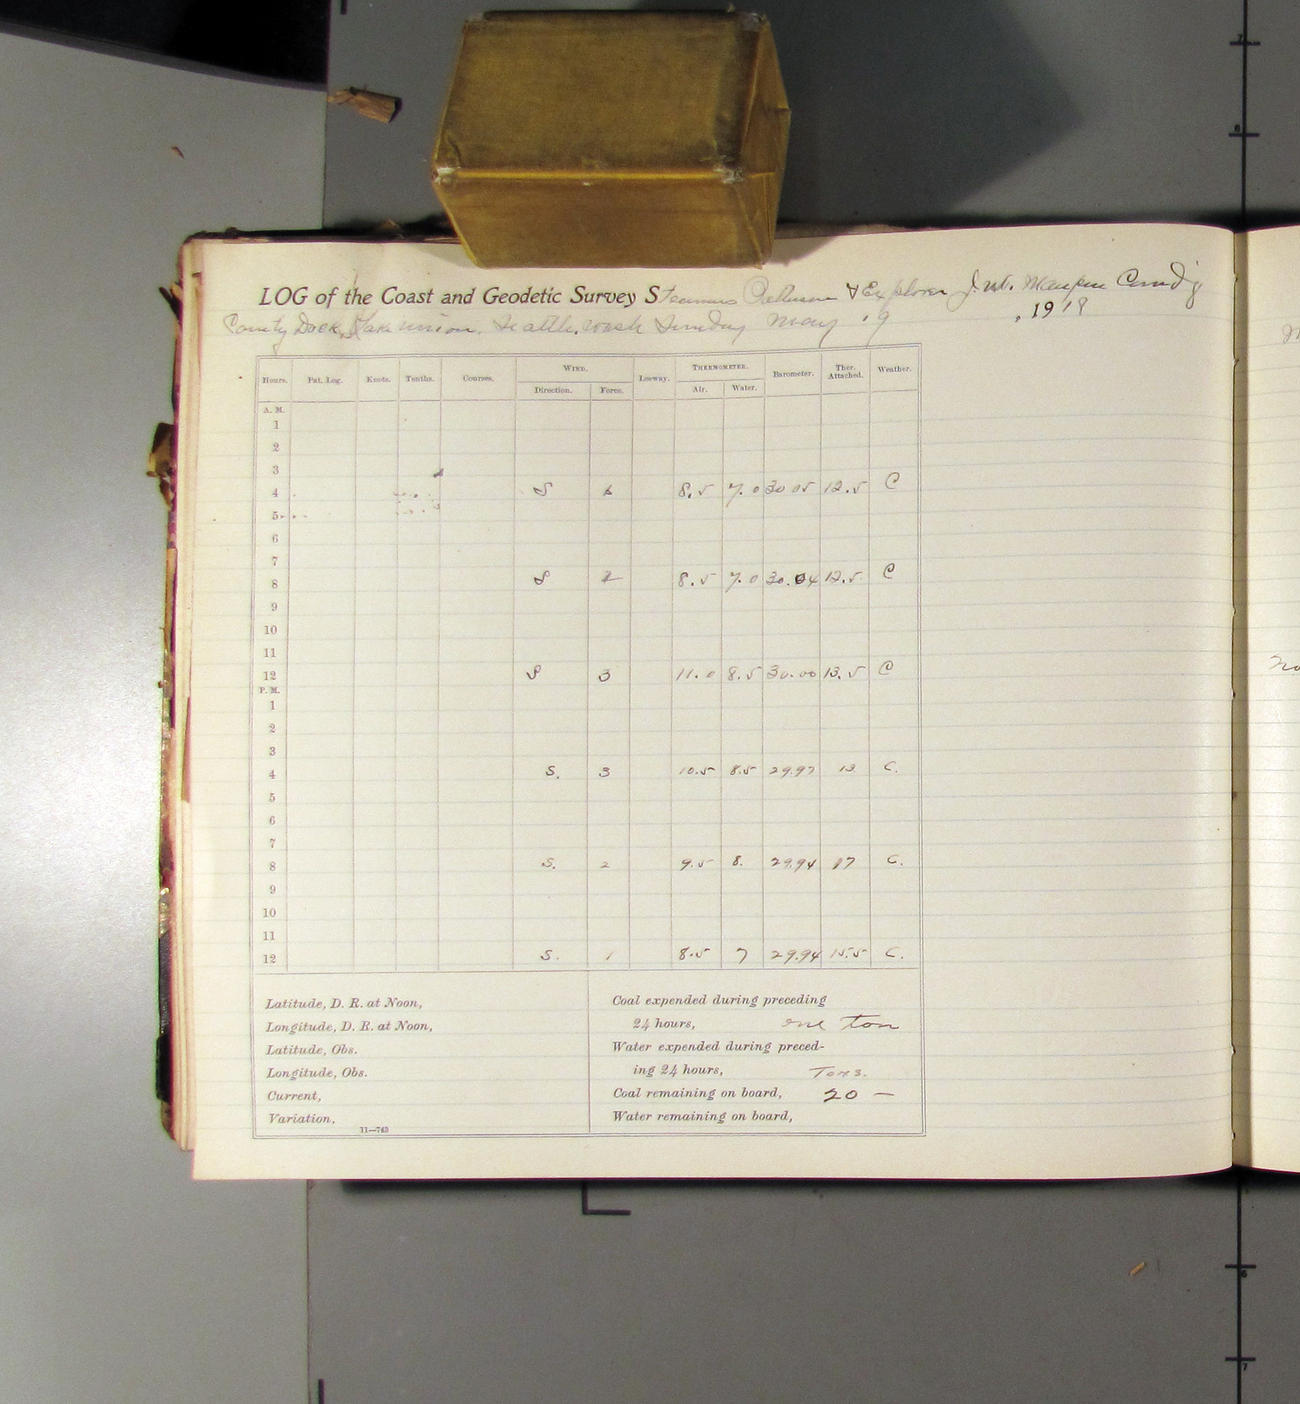 LOG of the Coast and Geodetic Survey Steamers Patterson & Explorer J. W. Maupin Comd'g
County Dock, Lake Union, Seattle, Wash Sunday May 19, 1918
Hours. Pat. Log. Knots. Tenths. Courses. WIND. Leeway. THERMOMETER. Barometer. Ther. Attached. Weather.
Direction. Force. Air. Water.
A. M.
1
2
3
4 S 8.5 7.0 30 05 12.5 C
5
6
7
8 S 2 8.5 7.0 30.04 12.5 C
9
10
11
12 S 3 11.0 8.5 30.00 13.5 C
P. M.
1
2
3
4 S. 3 10.5 8.5 29.97 13 C.
5
6
7
8 S. 2 9.5 8. 29.94 17 C.
9
10
11
12 S. 1 8.5 7 29.94 15.5 C.
Latitude, D. R. at Noon, Coal expended during preceding
Longitude, D. R. at Noon, 24 hours, one ton
Latitude, Obs. Water expended during preced-
Longitude, Obs. ing 24 hours, Tons.
Current, Coal remaining on board, 20 —
Variation, Water remaining on board,
11—743